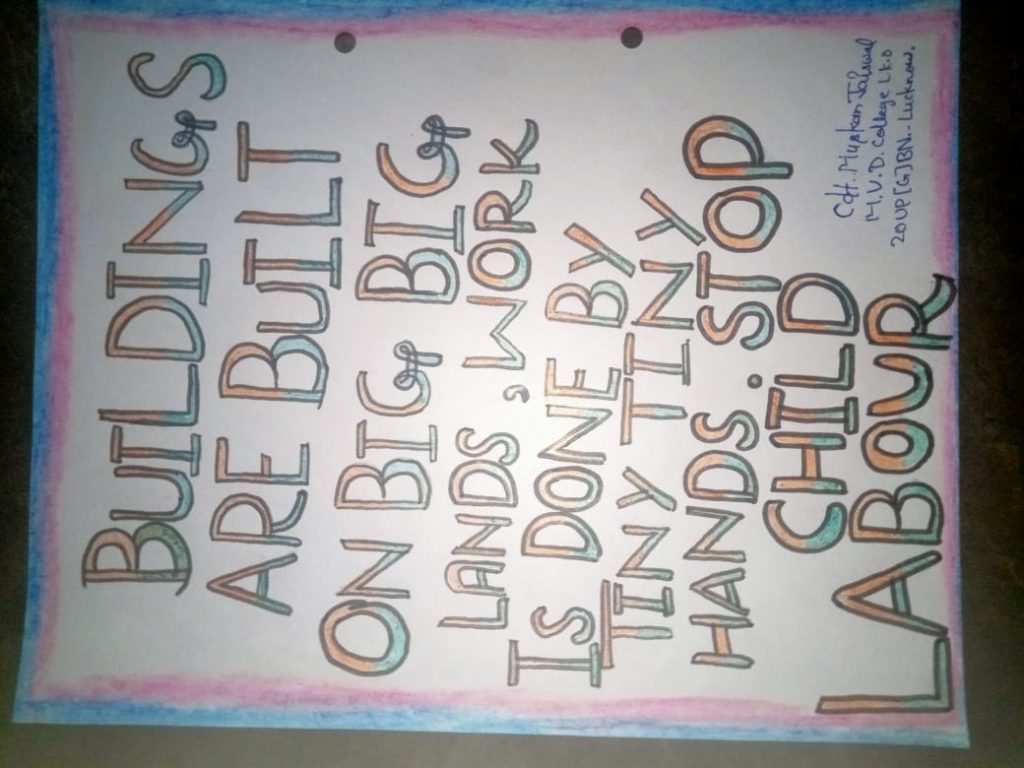 BUILDINGS
ARE BUILT
ON BIG BIG
LANDS, WORK
IS DONE BY
TINY TINY
HANDS. STOP
CHILD
LABOUR
Cdt. Muskan Jaiswal
M.V.D. College Lko
20UP[G]BN.. Lucknow.